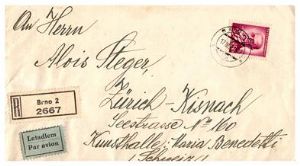 An Herrn
Alois Steger,
Zürich-Kisnach
Seestrasse No 160
Kunsthalle: Maria Benedetti
(Schweiz)
R
Brno 2
2667
Letadlem
Par avion